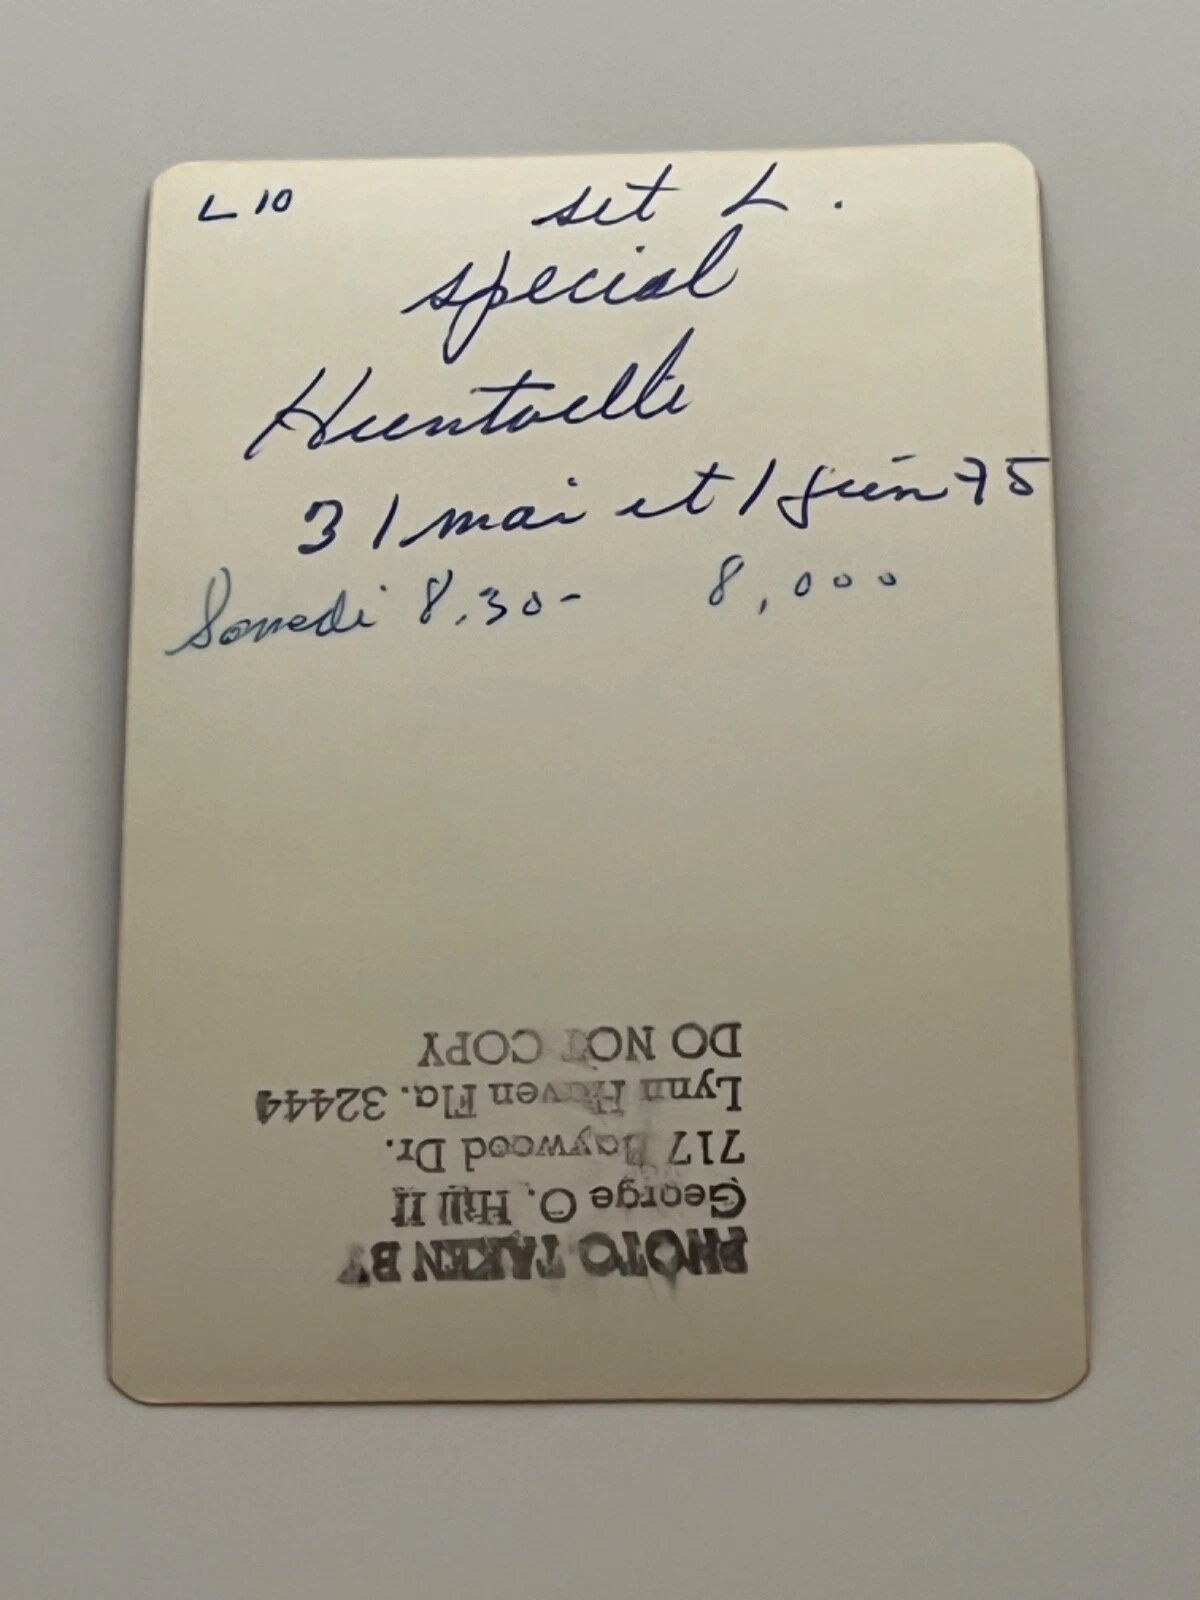 L 10 set L.
special
Huntsville
31 mai et 1 juin 75
Samedi 8.30- 8,000
PHOTO TAKEN BY
George O. Hill II
717 Baywood Dr.
Lynn Haven Fla. 32444
DO NOT COPY